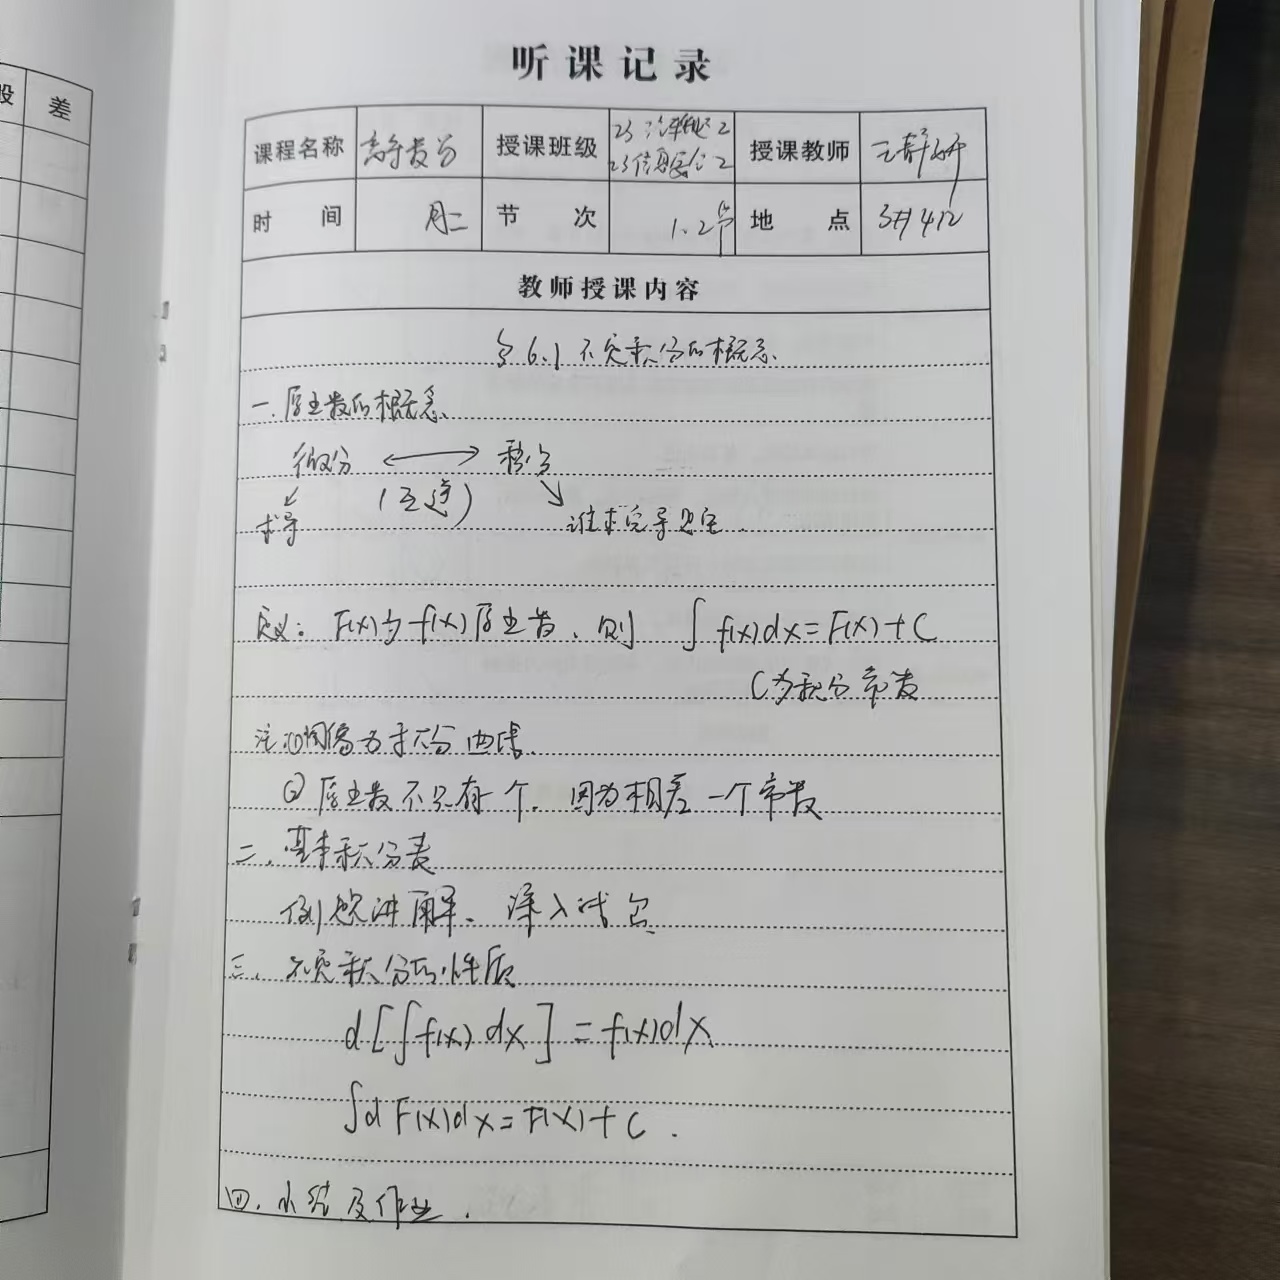 段 差
听课记录
课程名称 高等数学 授课班级 23 2 授课教师 王静
23信息 2
时间 周二 节次 1、2节 地点 3#412
教师授课内容
§6.1 不定积分的概念
一、原函数的概念
微分 ⟷ 积分
(互逆)
求导 谁求完导是它
定义：F(x)为f(x)原函数、则 ∫f(x)dx=F(x)+C
C为积分常数
注：①图像为积分曲线.
②原函数不只有一个. 因为相差一个常数
二、基本积分表
例题讲解、深入
三、不定积分的性质
d[∫f(x)dx]=f(x)dx
∫dF(x)dx=F(x)+C.
四、小结及作业.